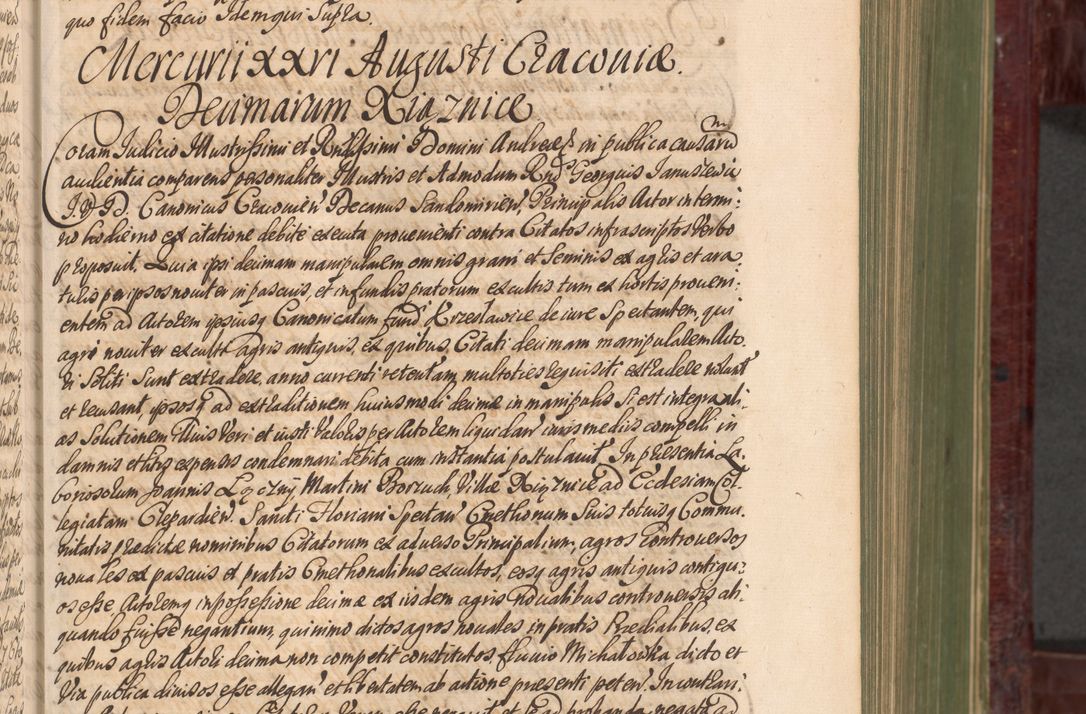 quo fidem facio Idem qui Supra.
Mercurii XXVI Augusti Cracoviæ.
Decimarum Xiąznice
Coram Judicio Illustrissimi et Rndissimi Domini Andreæ in publica causarũ
audientia comparens personaliter Illustris et Admodum Rnds Georgius Januszewic
J. V. D. Canonicus Cracovien' Decanus Sandomirien', Principalis Actor in termi-
no hodierno ex citatione debite executa provenienti contra Citatos infrascriptos Verbo
proposuit, Quia ipsi decimam manipularem omnis grani et Seminis ex agris et ara-
turis per ipsos noviter in pascuis, et in fundis pratorum excultis tum ex hortis proveni-
entem ad Actorem ipsiusq Canonicatum fundi Krzesławice de iure Spectantem, qui
agri noviter exculti agris antiquis, ex quibus Citati decimam manipularem Acto-
ri Soliti Sunt extradere, anno currenti retentam multoties requisiti extradere nolunt
et recusant, ipsosq ad extraditionem huiusmodi decimæ in manipulis Si est integra ali-
as Solutionem illius Veri et iusti Valoris per Actorem liquidan' iuris mediis compelli in
damnis et litis expensis condemnari debita cum instantia postulavit. In præsentia La-
boriosorum Joannis Łączny Martini Borzuch Villæ Xiąznice ad Ecclesiam Col-
legiatam Clepardien'. Sancti Floriani Spectan' Cmethonum Suis totiusq Commu-
nitatis prædictæ nominibus Citatorum ex adverso Principalium, agros controversos
novales ex pascuis et pratis Cmethonalibus excultos, eosq agris antiquis contigu-
os esse Actoremq in possessione decimæ ex iisdem agris novalibus controversis ali-
quando fuisse negantium, quinimo dictos agros novales in pratis Prædialibus, ex
quibus agris Actori decima non competit constitutos, fluvio Michałowka dicto et
Via publica divisos esse allegan' et libertatem ab actione præsenti peten'. In contrari-